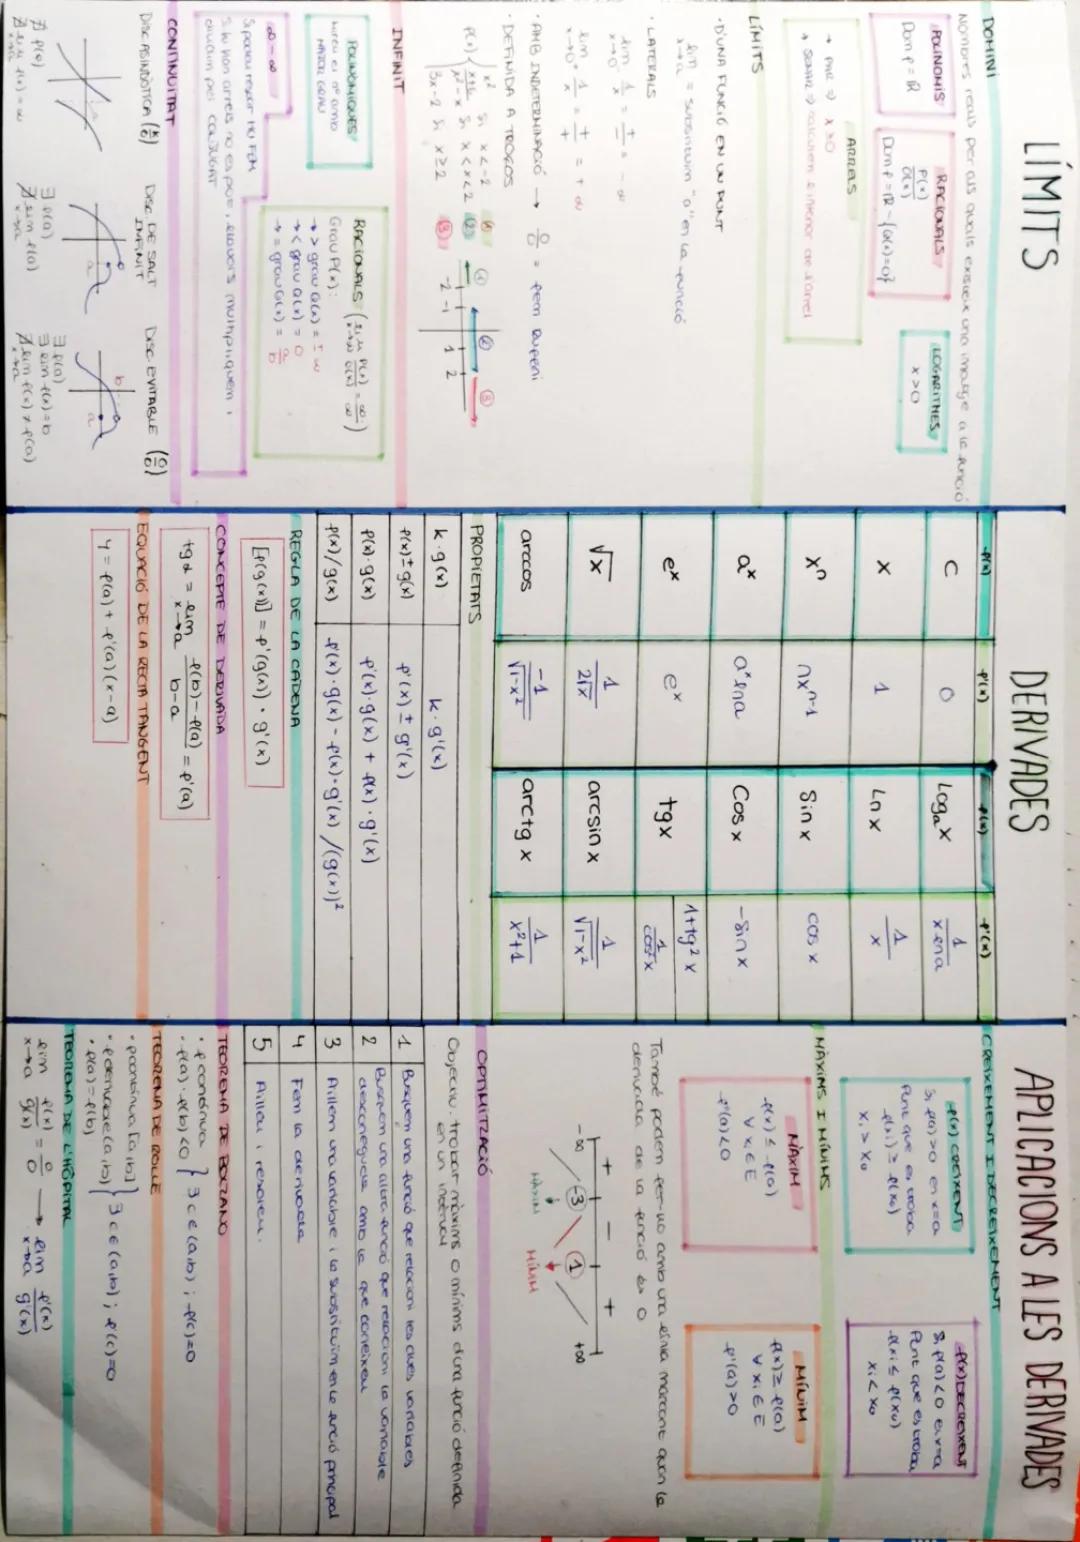 LÍMITS
DOMINI
Nombres reals per als quals existeix una imatge a la funció
POLINOMIS
Dom f = ℝ
RACIONALS
P(x)/Q(x)
Dom f = ℝ - {Q(x)=0}
LOGARITMES
x>0
ARRELS
→ PAR ⇒ x ≥ 0
LÍMITS
· D'UNA FUNCIÓ EN UN PUNT
lim x→a = substituïm "a" en la funció
· LATERALS
lim x→0⁻ 1/x = +/- = -∞
lim x→0⁺ 1/x = +/+ = +∞
· AMB INDETERMINACIÓ → 0/0 = fem Ruffini
· DEFINIDA A TROÇOS
x² si x<-2 ①
si x<x<2 ②
3x-2 si x≥2 ③
① ② ③
-2 -1 1 2
INFINIT
POLINÒMIQUES
Mireu el nº amb
MAJOR GRAU
RACIONALS (lim x→∞ P(x)/Q(x) = ∞/∞)
Grau P(x):
→ > grau Q(x) = ± ∞
→ < grau Q(x) = 0
→ = grau Q(x) = a/b
∞ - ∞
Si podeu restar HO FEM
Si hi han arrels no es pot, llavors multipliquem i
dividim pel CONJUGAT
CONTINUITAT
DISC. ASINDÒTICA (k/0)
∄ f(a)
∄ lim x→a f(x) = ∞
DISC. DE SALT
INFINIT
a
∃ f(a)
∄ lim x→a f(a)
DISC. EVITABLE (0/0)
b
a
∃ f(a)
∃ lim f(x) = b
∄ lim x→a f(x) ≠ f(a)
DERIVADES
f(x) f'(x) f(x) f'(x)
C 0 Logₐ x 1/(x·lna)
x 1 Ln x 1/x
xⁿ nxⁿ⁻¹ Sin x cos x
aˣ aˣ lna Cos x -sin x
eˣ eˣ tg x 1+tg² x
1/cos²x
√x 1/(2√x) arcsin x 1/√(1-x²)
arccos -1/√(1-x²) arctg x 1/(x²+1)
PROPIETATS
k·g(x) k·g'(x)
f(x) ± g(x) f'(x) ± g'(x)
f(x)·g(x) f'(x)·g(x) + f(x)·g'(x)
f(x)/g(x) f'(x)·g(x) - f(x)·g'(x) /(g(x))²
REGLA DE LA CADENA
[f(g(x))] = f'(g(x))·g'(x)
CONCEPTE DE DERIVADA
tg α = lim x→a (f(b)-f(a))/(b-a) = f'(a)
EQUACIÓ DE LA RECTA TANGENT
y = f(a) + f'(a)(x-a)
APLICACIONS A LES DERIVADES
CREIXEMENT I DECREIXEMENT
f(x) CREIXENT
Si f(a) > 0 en x=a
Punt que es troba
f(xi) ≥ f(x₀)
xi > x₀
f(x) DECREIXENT
Si f(a) < 0 en x=a
Punt que es troba
f(xi ≤ f(x₀)
xi < x₀
MÀXIMS I MÍNIMS
MÀXIM
f(x) ≤ f(a)
∀ x ∈ E
f''(a) < 0
MÍNIM
f(x) ≥ f(a)
∀ xi ∈ E
f''(a) > 0
També podem fer-ho amb una línia marcant quan la
derivada de la funció és 0
+ - +
-∞ -3 1 +∞
MÀXIM MÍNIM
OPTIMITZACIÓ
Objectiu: trobar màxims o mínims d'una funció definida
en un interval
1 Busquem una funció que relacioni les dues variables
2 Busquem una altra funció que relacioni la variable
desconeguda amb la que coneixeu
3 Aïllem una variable i la substituïm en la funció principal
4 Fem la derivada
5 Aïlleu i resoleu.
TEOREMA DE BOLZANO
· f contínua
· f(a)·f(b)<0 } ∃ c ∈ (a,b) ; f(c)=0
TEOREMA DE ROLLE
· f contínua [a,b]
· f derivable (a,b)
· f(a)=f(b) } ∃ c ∈ (a,b) ; f'(c)=0
TEOREMA DE L'HÔPITAL
lim x→a f(x)/g(x) = 0/0 → lim x→a f'(x)/g'(x)